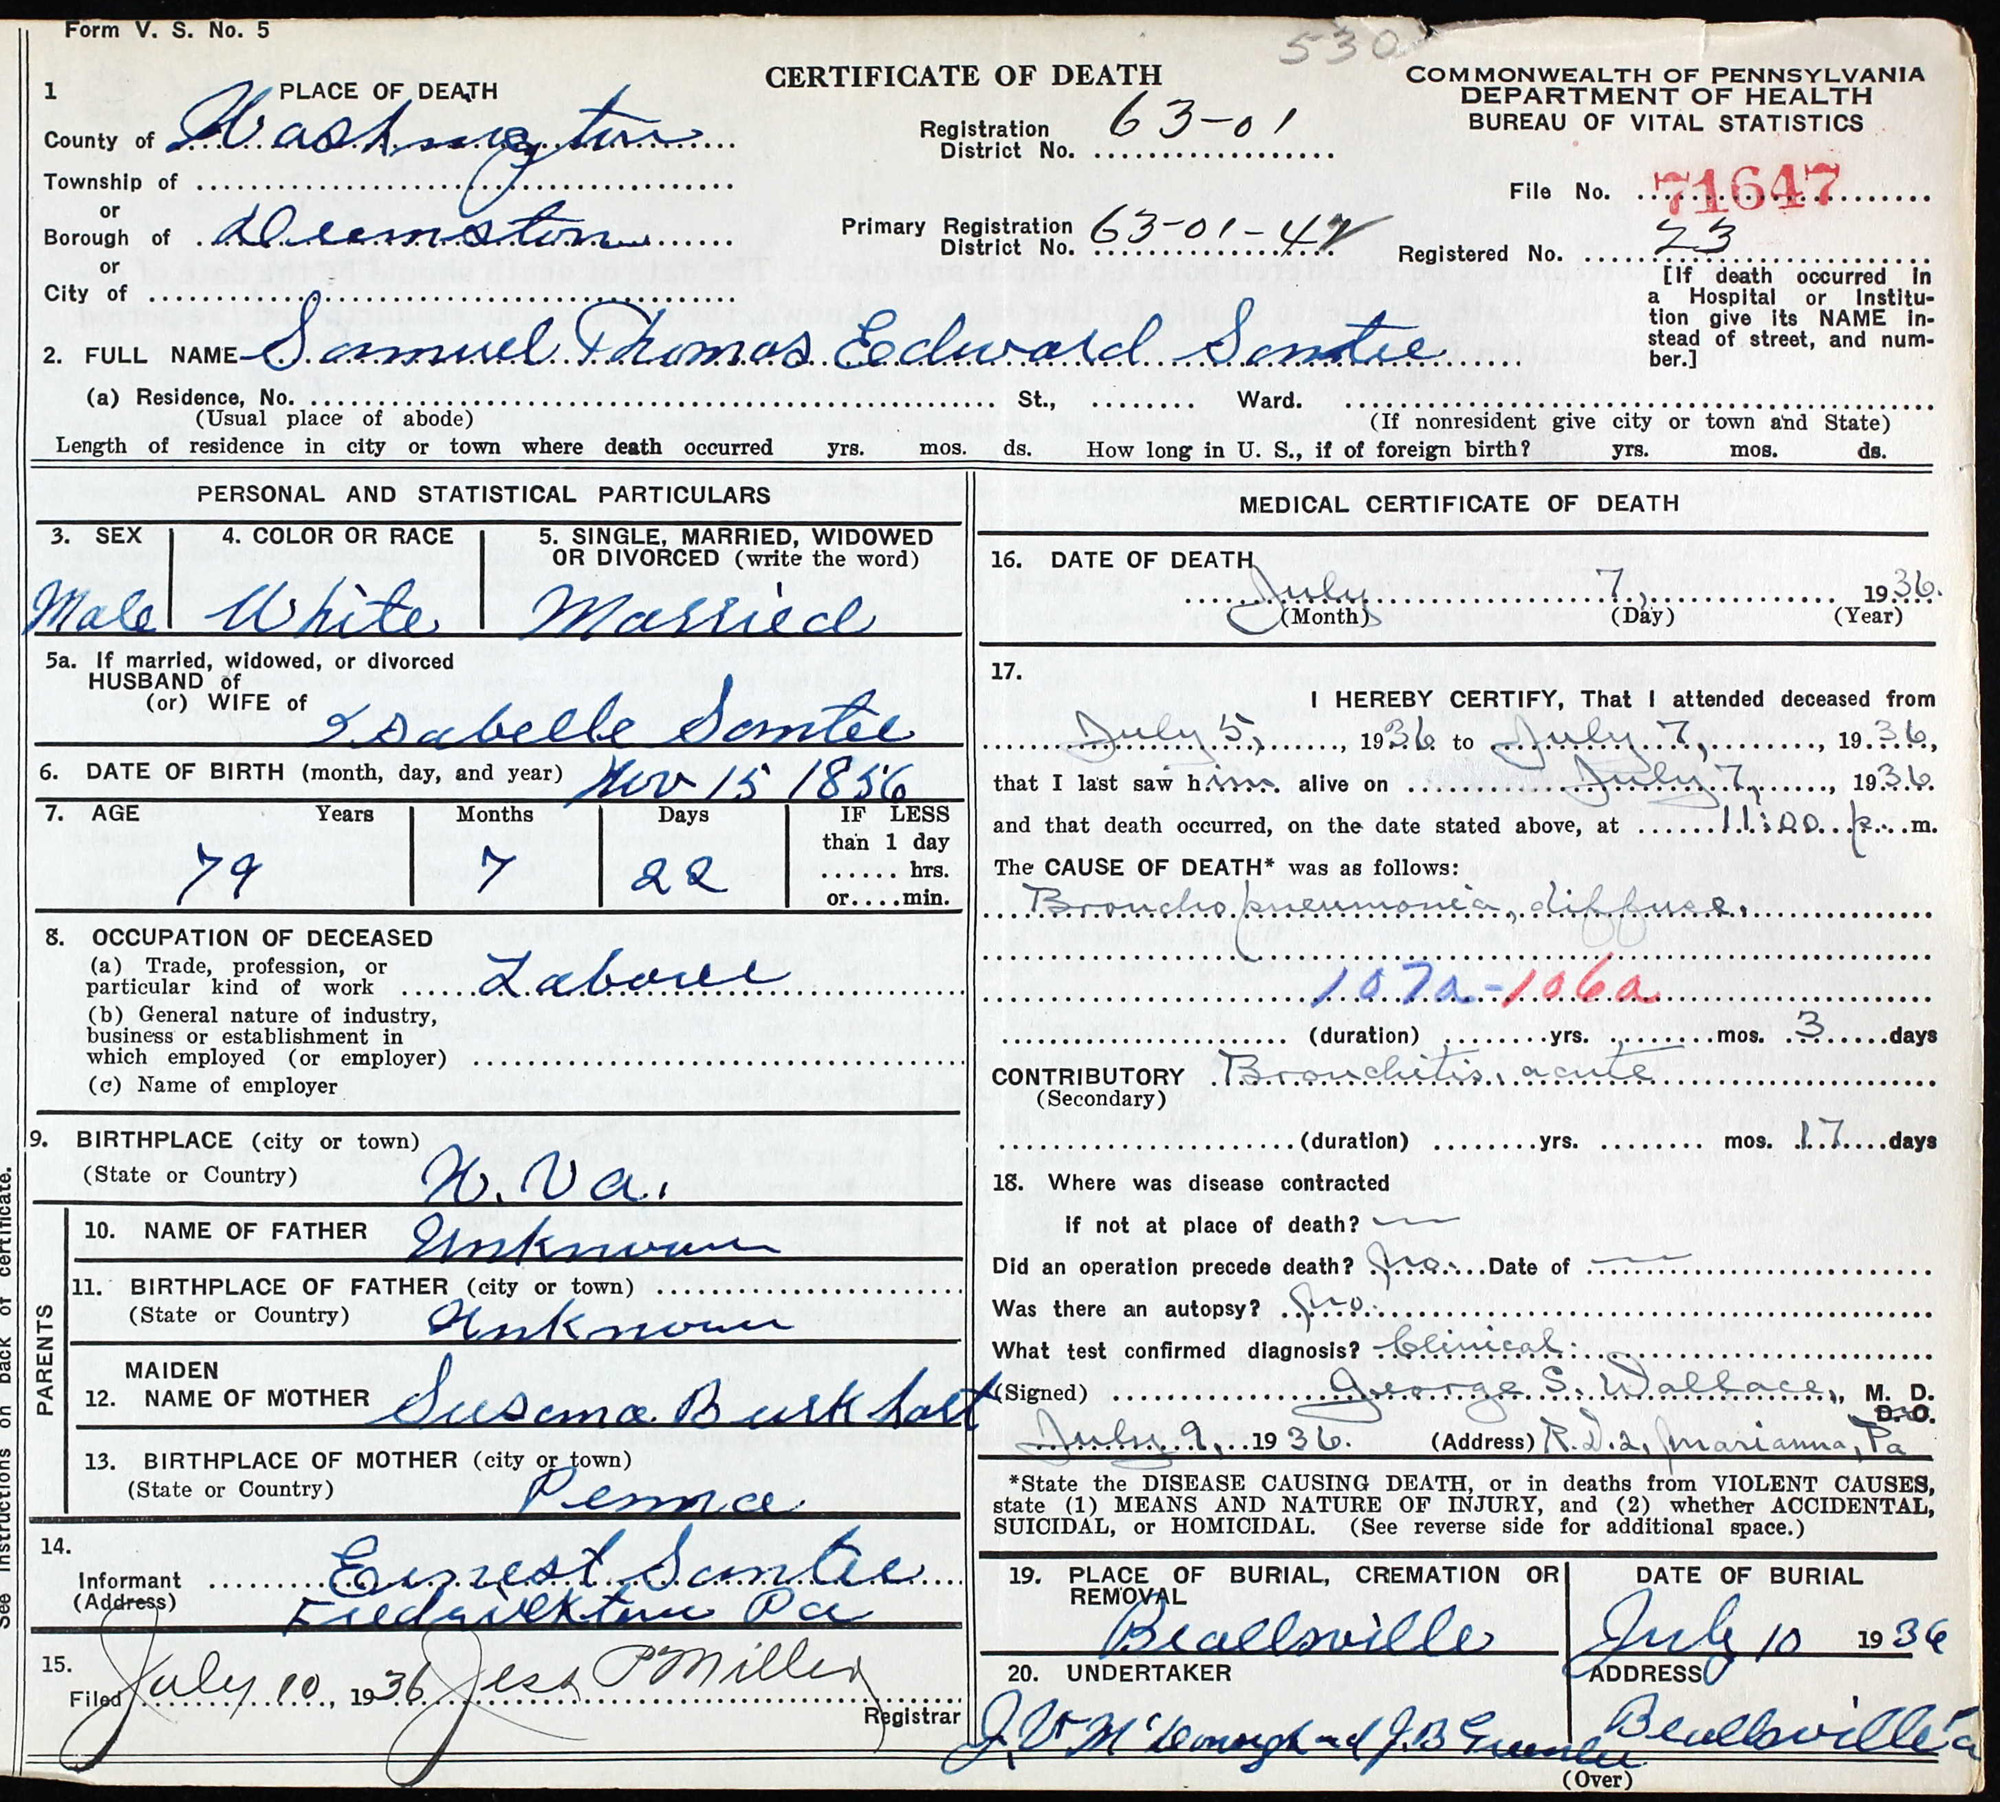 Form V. S. No. 5
530
CERTIFICATE OF DEATH
COMMONWEALTH OF PENNSYLVANIA
DEPARTMENT OF HEALTH
BUREAU OF VITAL STATISTICS
1 PLACE OF DEATH
County of Washington
Township of
or
Borough of Deemston
or
City of
Registration District No. 63-01
Primary Registration District No. 63-01-42
File No. 71647
Registered No. 23
[If death occurred in
a Hospital or Institu-
tion give its NAME in-
stead of street, and num-
ber.]
2. FULL NAME Samuel Thomas Edward Santee
(a) Residence, No. St., Ward.
(Usual place of abode) (If nonresident give city or town and State)
Length of residence in city or town where death occurred yrs. mos. ds. How long in U. S., if of foreign birth? yrs. mos. ds.
PERSONAL AND STATISTICAL PARTICULARS
3. SEX 4. COLOR OR RACE 5. SINGLE, MARRIED, WIDOWED
OR DIVORCED (write the word)
Male White Married
5a. If married, widowed, or divorced
HUSBAND of
(or) WIFE of Isabelle Santee
6. DATE OF BIRTH (month, day, and year) Nov 15 1856
7. AGE Years Months Days IF LESS
than 1 day
79 7 22 hrs.
or min.
8. OCCUPATION OF DECEASED
(a) Trade, profession, or
particular kind of work Laborer
(b) General nature of industry,
business or establishment in
which employed (or employer)
(c) Name of employer
9. BIRTHPLACE (city or town)
(State or Country) W. Va.
PARENTS
10. NAME OF FATHER Unknown
11. BIRTHPLACE OF FATHER (city or town)
(State or Country) Unknown
MAIDEN
12. NAME OF MOTHER Susana Burkhart
13. BIRTHPLACE OF MOTHER (city or town)
(State or Country) Penna
14.
Informant Ernest Santee
(Address) Fredricktown Pa
15.
Filed July 10, 1936 Jess P Miller
Registrar
See instructions on back of certificate.
MEDICAL CERTIFICATE OF DEATH
16. DATE OF DEATH
July 7, 1936.
(Month) (Day) (Year)
17.
I HEREBY CERTIFY, That I attended deceased from
July 5, 1936 to July 7, 1936,
that I last saw him alive on July 7, 1936.
and that death occurred, on the date stated above, at 11:00 p. m.
The CAUSE OF DEATH* was as follows:
Bronchopneumonia, diffuse.
107a-106a
(duration) yrs. mos. 3 days
CONTRIBUTORY Bronchitis, acute
(Secondary)
(duration) yrs. mos. 17 days
18. Where was disease contracted
if not at place of death? —
Did an operation precede death? no. Date of —
Was there an autopsy? no.
What test confirmed diagnosis? Clinical.
(Signed) George S. Wallace, M. D.
D.O.
July 9, 1936. (Address) R.D.2, Marianna, Pa
*State the DISEASE CAUSING DEATH, or in deaths from VIOLENT CAUSES,
state (1) MEANS AND NATURE OF INJURY, and (2) whether ACCIDENTAL,
SUICIDAL, or HOMICIDAL. (See reverse side for additional space.)
19. PLACE OF BURIAL, CREMATION OR
REMOVAL
Beallsville
DATE OF BURIAL
July 10 1936
20. UNDERTAKER
J. V. McDonough and J. B. Greenlee
ADDRESS
Beallsville Pa
(Over)